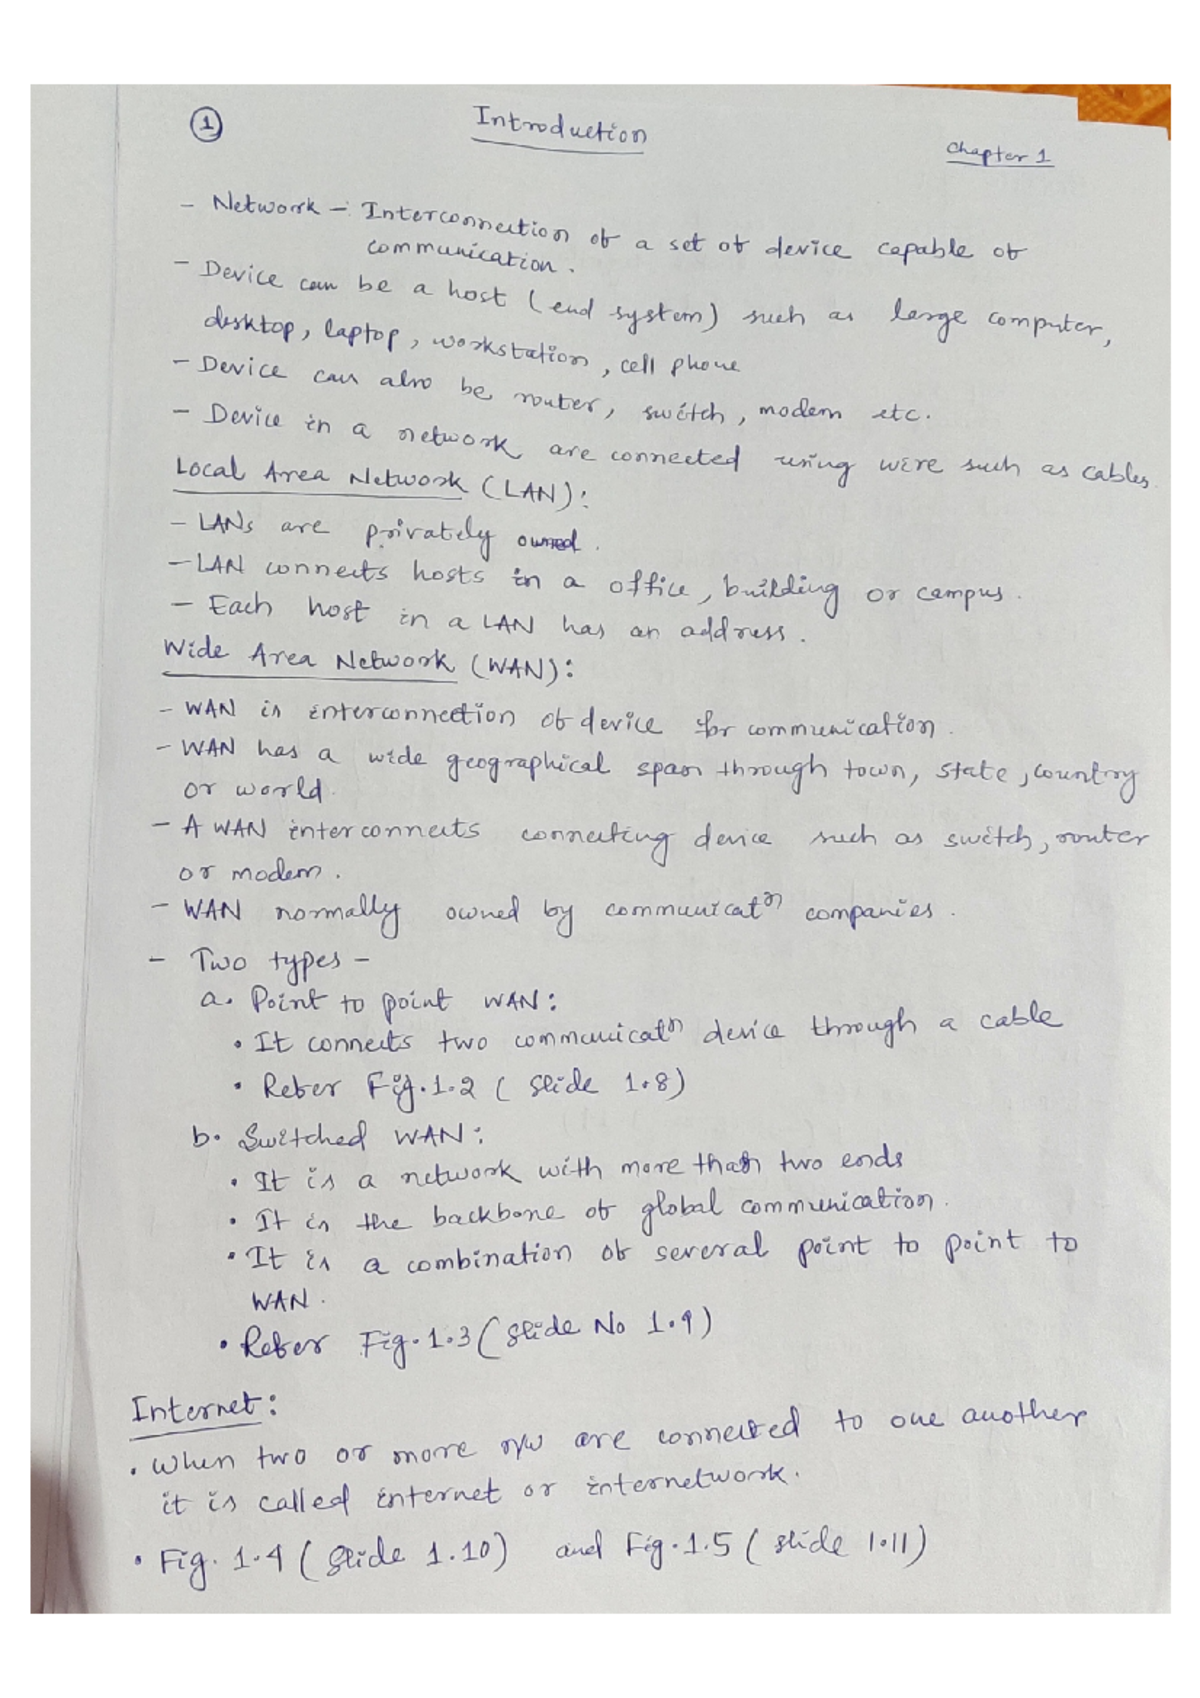 1
Introduction
Chapter 1
- Network - Interconnection of a set of device capable of
communication.
- Device can be a host (end system) such as large computer,
desktop, laptop, workstation, cell phone
- Device can also be router, switch, modem etc.
- Device in a network are connected using wire such as cables.
Local Area Network (LAN):
- LANs are privately owned.
- LAN connects hosts in a office, building or campus.
- Each host in a LAN has an address.
Wide Area Network (WAN):
- WAN is interconnection of device for communication.
- WAN has a wide geographical span through town, state, country
or world.
- A WAN interconnects connecting device such as switch, router
or modem.
- WAN normally owned by communicatn companies.
- Two types -
a. Point to point WAN:
• It connects two communicatn device through a cable
• Refer Fig. 1.2 ( Slide 1.8)
b. Switched WAN:
• It is a network with more than two ends
• It is the backbone of global communication.
• It is a combination of several point to point to
WAN.
• Refer Fig. 1.3 (Slide No 1.9)
Internet:
• When two or more n/w are connected to one another
it is called internet or internetwork.
• Fig. 1.4 ( Slide 1.10) and Fig. 1.5 ( slide 1.11)